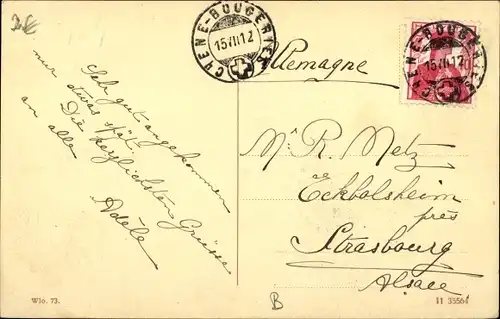 CHÊNE-BOUGERIES
15.VII.12
CHÊNE-BOUGERIES
15.VII.12
Allemagne
Sehr gut angekommen
nur etwas spät.
Die herzlichsten Grüsse
an alle
Adèle
Mr R. Metz
Eckbolsheim
près
Strasbourg
Alsace
B
Wlo. 73.
11 35564